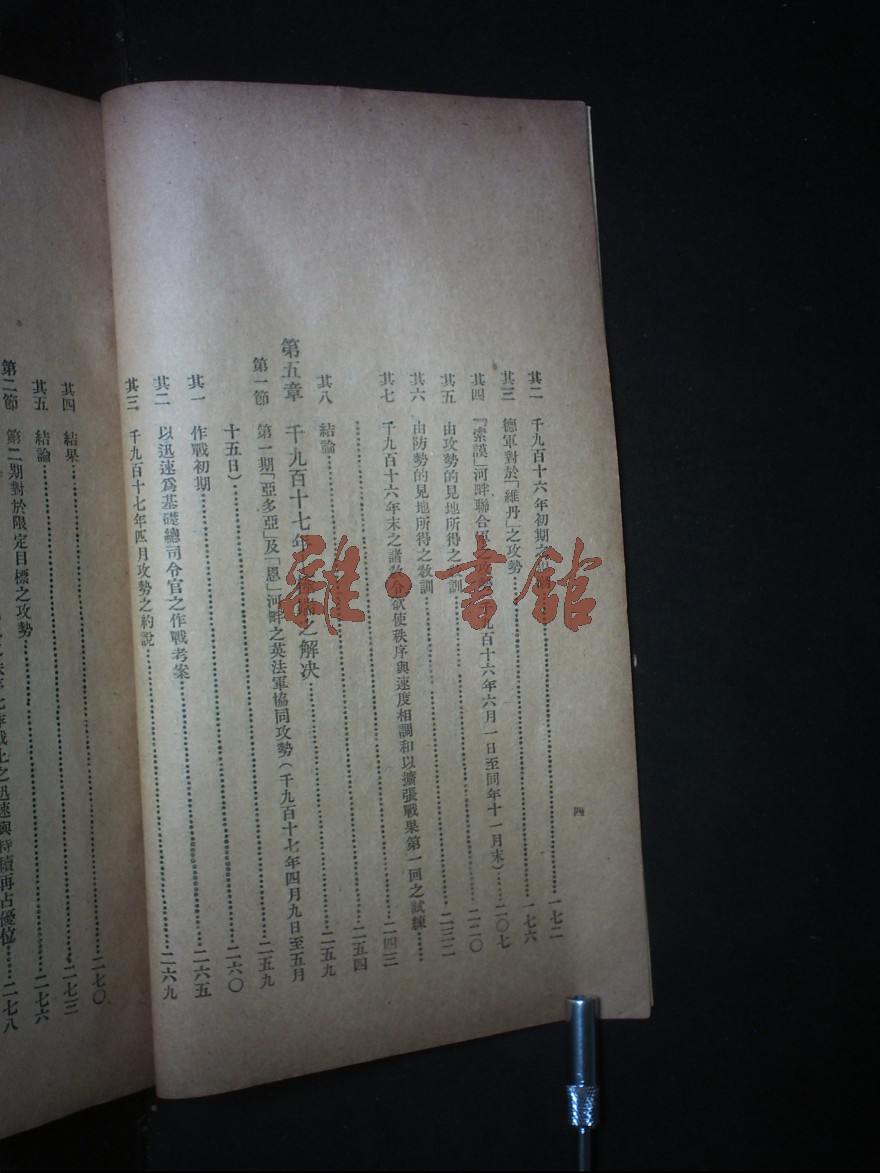 四
其二 千九百十六年初期之
一七二
其三 德軍對於「維丹」之攻勢
一七六
其四 「索謨」河畔聯合軍之攻勢(千九百十六年六月一日至同年十一月末)
二〇七
其五 由攻勢的見地所得之敎訓
二二〇
其六 由防勢的見地所得之敎訓
二三二
其七 千九百十六年末之諸敎令欲使秩序與速度相調和以擴張戰果第一回之試練
二四三
二五四
其八 結論
二五九
第五章 千九百十七年 之解决
第一節 第一期「亞多亞」及「恩」河畔之英法軍協同攻勢(千九百十七年四月九日至五月
二五九
十五日)
二六〇
其一 作戰初期
二六五
其二 以迅速爲基礎總司令官之作戰考案
二六九
其三 千九百十七年四月攻勢之約說
二七〇
其四 結果
二七三
其五 結論
二七六
第二節 第二期對於限定目標之攻勢
作戰上之迅速與持續再占優位
二七八
雅·書館